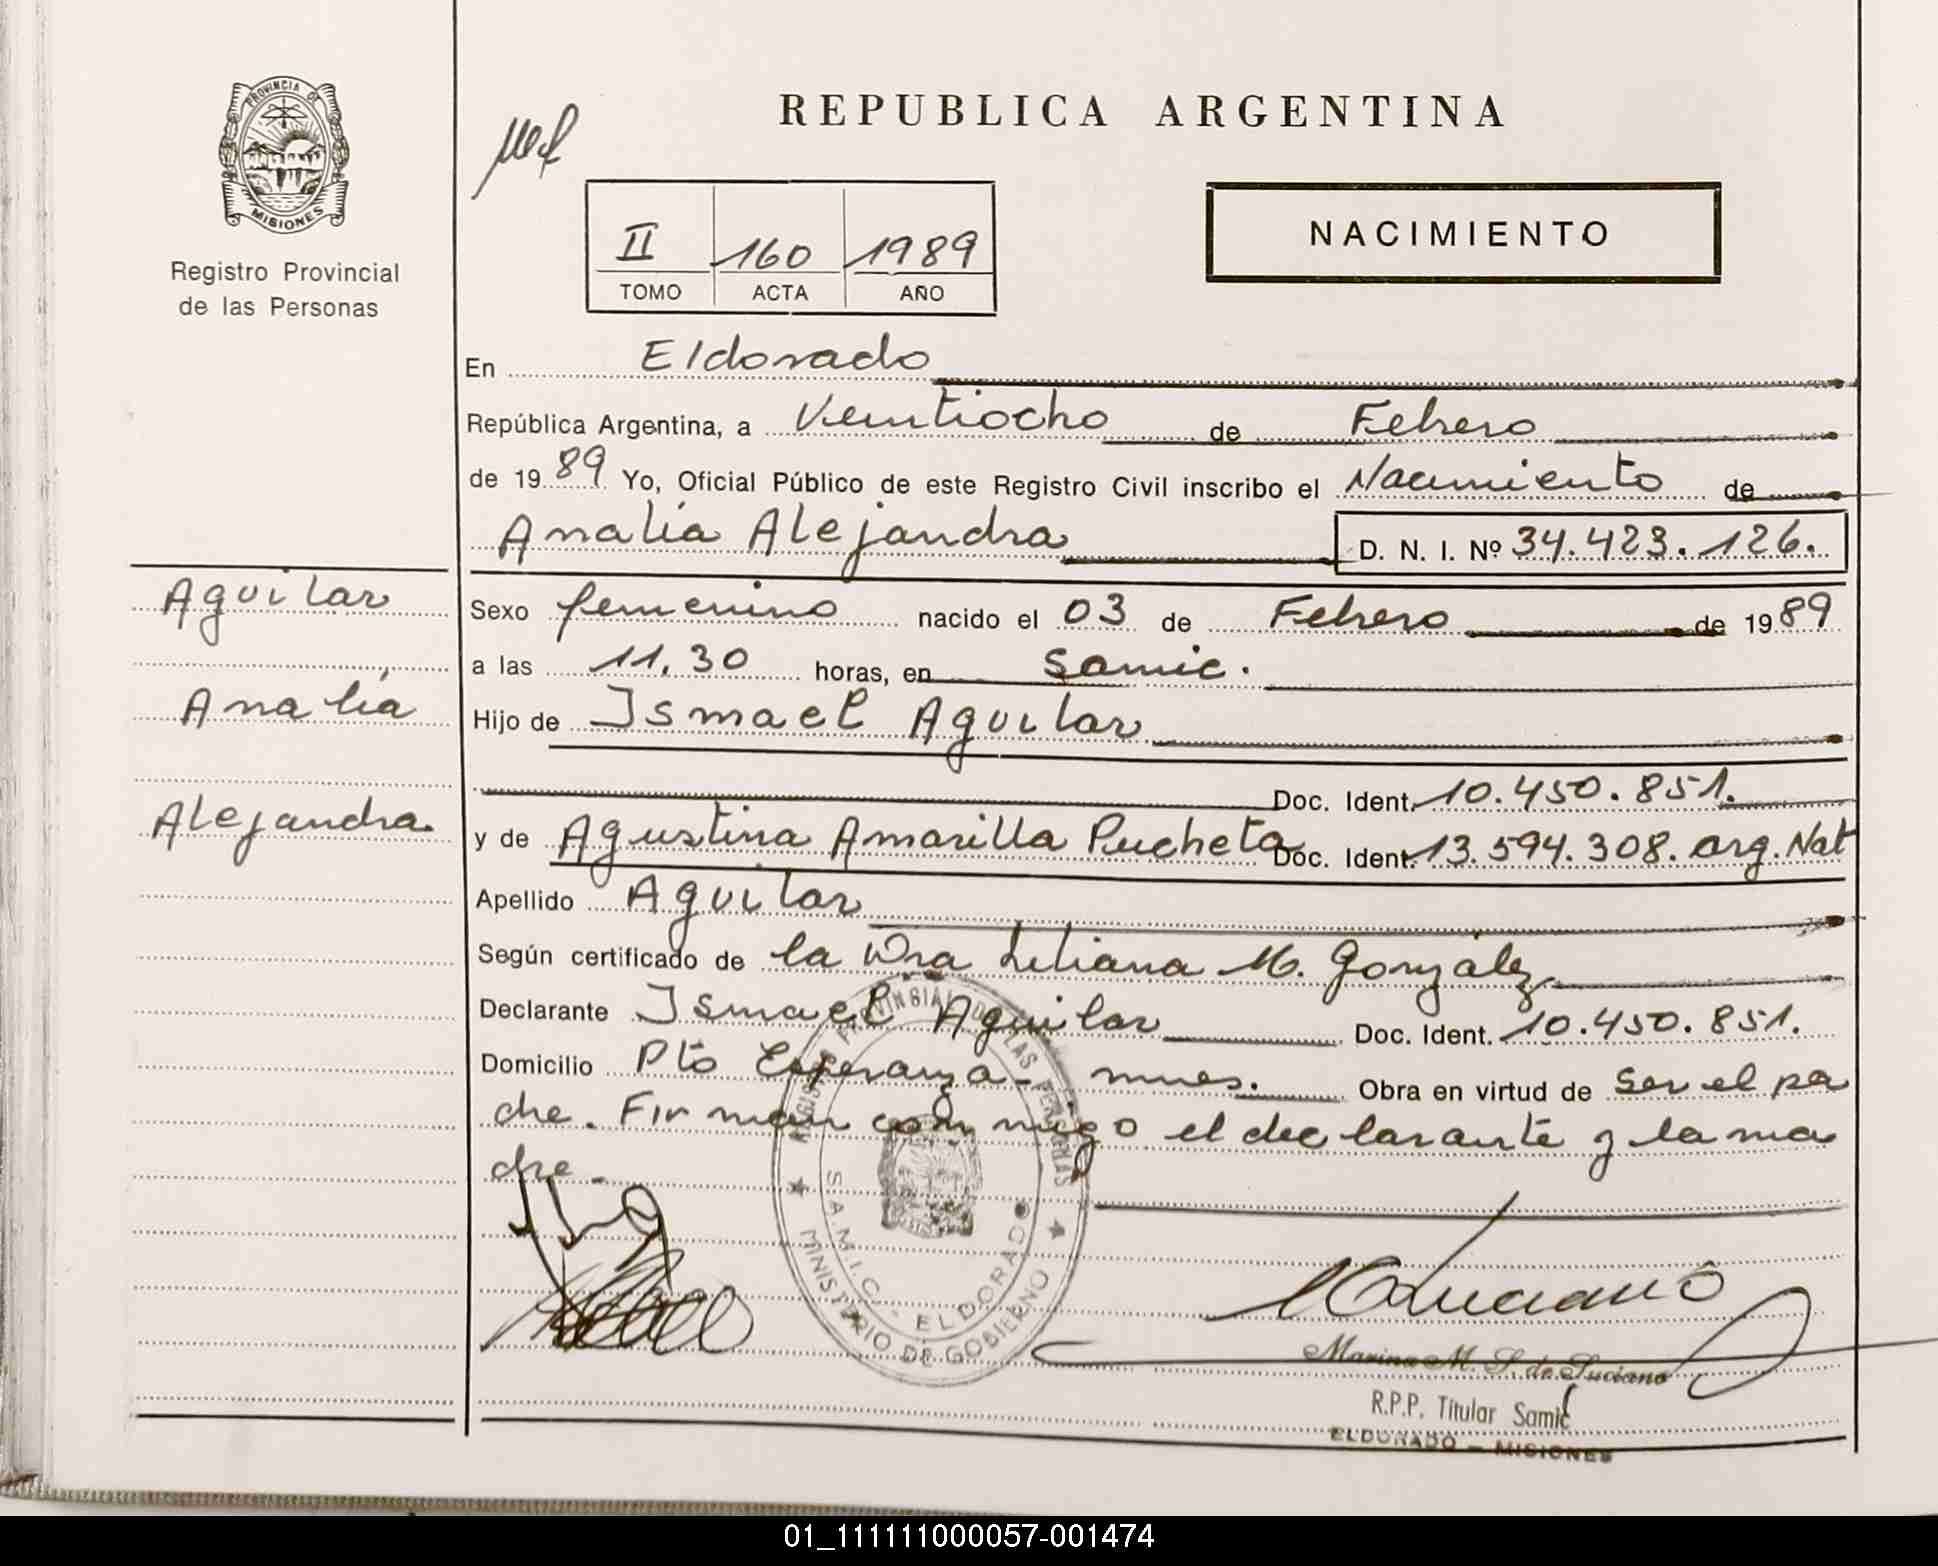 PROVINCIA DE
MISIONES
Registro Provincial
de las Personas
REPUBLICA ARGENTINA
II 160 1989
TOMO ACTA AÑO
NACIMIENTO
En Eldorado
República Argentina, a Veintiocho de Febrero
de 1989 Yo, Oficial Público de este Registro Civil inscribo el Nacimiento de
Analía Alejandra D. N. I. Nº 34.423.126.
Aguilar
Analía
Alejandra.
Sexo femenino nacido el 03 de Febrero de 1989
a las 11.30 horas, en Samic.
Hijo de Ismael Aguilar
Doc. Ident. 10.450.851.
y de Agustina Amarilla Pucheta Doc. Ident. 13.594.308. arg. Nat
Apellido Aguilar
Según certificado de la Dra Liliana M. González
Declarante Ismael Aguilar Doc. Ident. 10.450.851.
Domicilio Pto Esperanza - mnes. Obra en virtud de ser el pa
dre. Firman conmigo el declarante y la ma
dre.-
REGISTRO PROVINCIAL DE LAS PERSONAS
S.A.M.I.C. - ELDORADO
MINISTERIO DE GOBIERNO
Luciano
Marina M. S. de Luciano
R.P.P. Titular Samic
ELDORADO - MISIONES
01_111111000057-001474